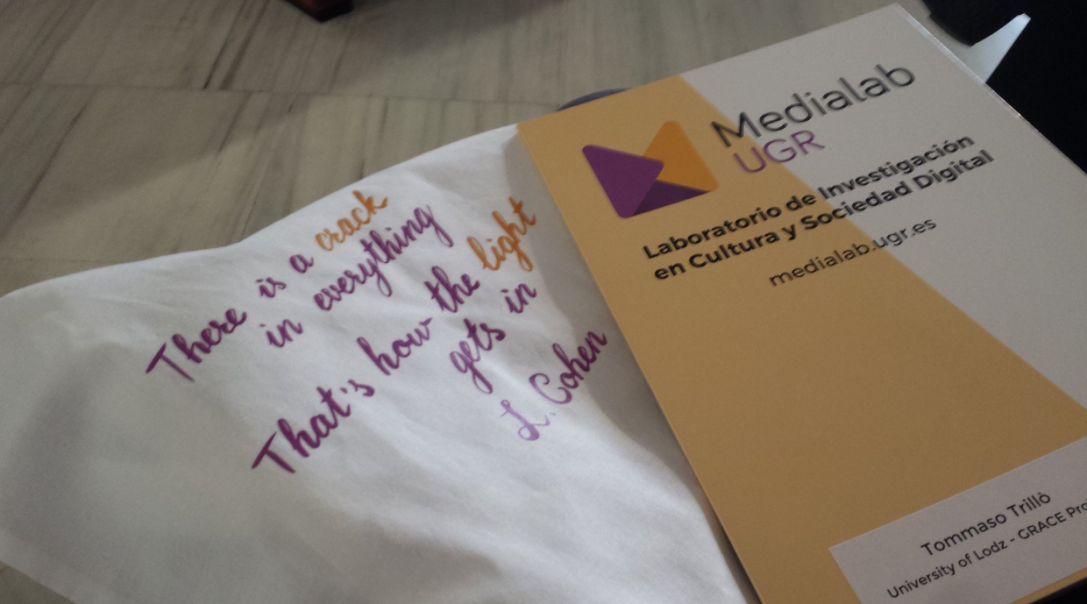 There is a crack
in everything
That's how the light
gets in
L. Cohen
Medialab
UGR
Laboratorio de Investigación
en Cultura y Sociedad Digital
medialab.ugr.es
Tommaso Trillò
University of Lodz - GRACE